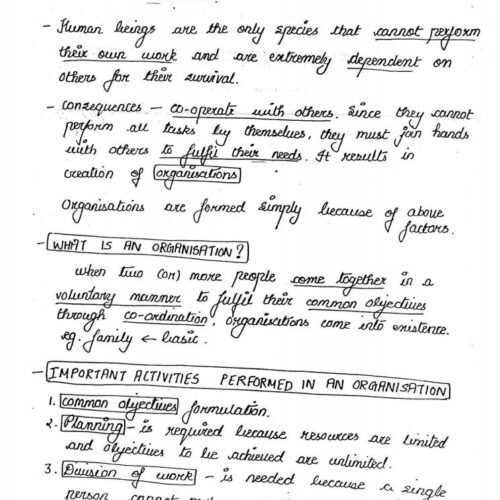 - Human beings are the only species that cannot perform
their own work and are extremely dependent on
others for their survival.
- Consequences - co-operate with others. Since they cannot
perform all tasks by themselves, they must join hands
with others to fulfil their needs. It results in
creation of organisations
Organisations are formed simply because of above
factors.
- WHAT IS AN ORGANISATION?
when two (or) more people come together in a
voluntary manner to fulfil their common objectives
through co-ordination, organisations come into existence.
eg. family ← basic.
- IMPORTANT ACTIVITIES PERFORMED IN AN ORGANISATION
1. common objectives formulation.
2. Planning - is required because resources are limited
and objectives to be achieved are unlimited.
3. Division of work - is needed because a single
person cannot